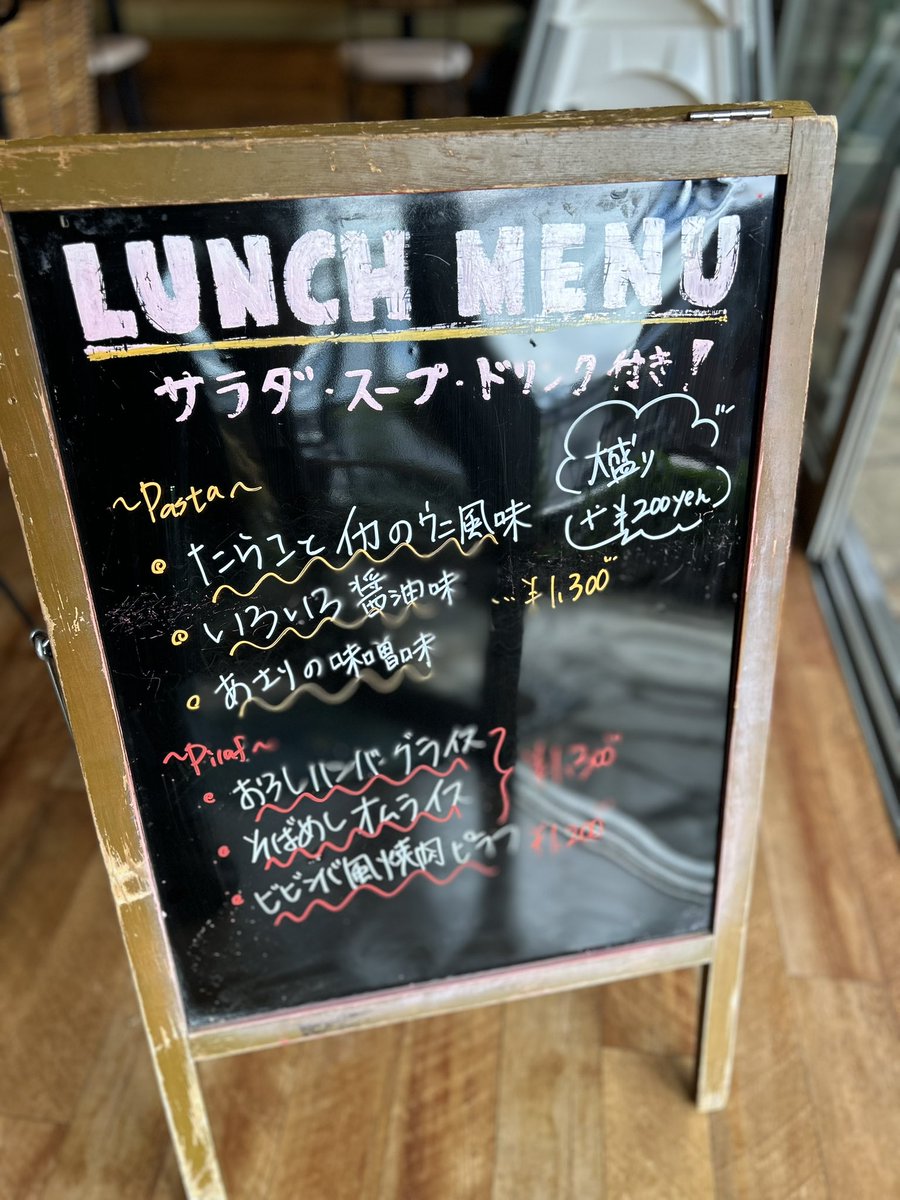 LUNCH MENU
サラダ・スープ・ドリンク付き!
大盛り
+¥200yen
~Pasta~
たらことイカのウニ風味
いろいろ醤油味 …¥1,300
あさりの味噌味
~Pilaf~
おろしハンバーグライス
そばめしオムライス
¥1,300
ビビンバ風焼肉ピラフ